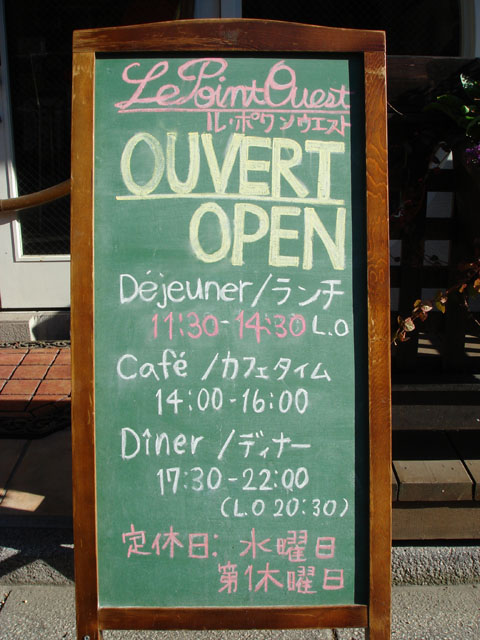 Le Point Ouest
ル・ポワンウエスト
OUVERT
OPEN
Déjeuner/ランチ
11:30-14:30 L.O
Café /カフェタイム
14:00-16:00
Dîner /ディナー
17:30-22:00
(L.O 20:30)
定休日: 水曜日
第1木曜日